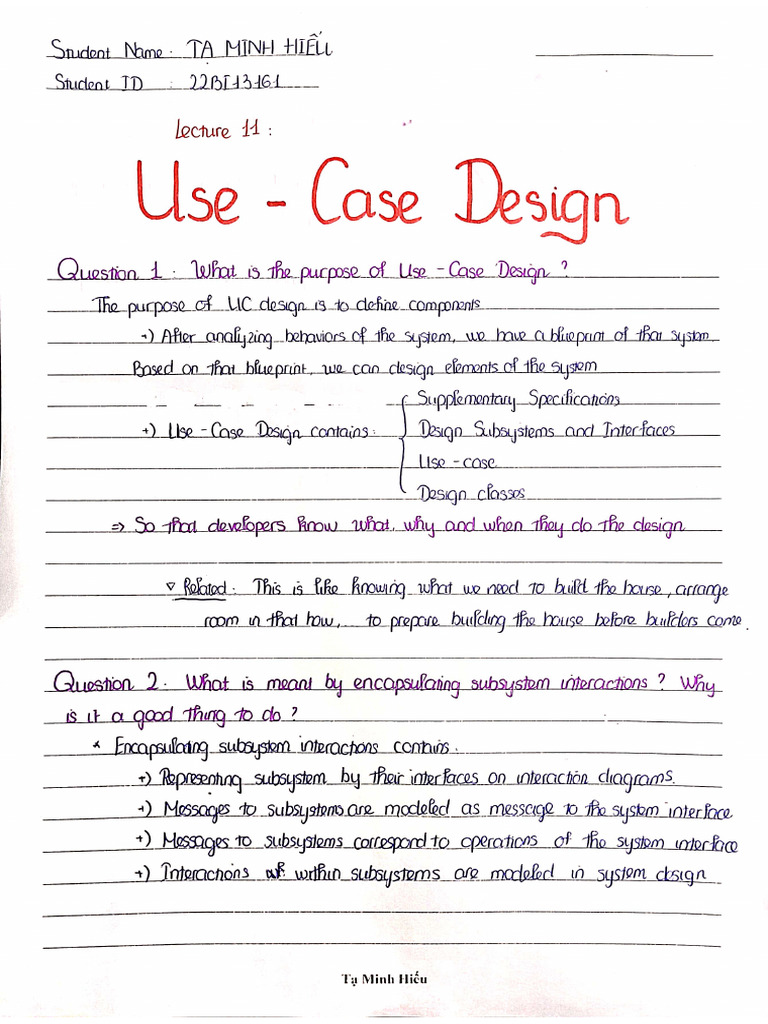 Student Name: TẠ MINH HIẾU
Student ID : 22BI13161
Lecture 11:
Use - Case Design
Question 1: What is the purpose of Use - Case Design?
The purpose of UC design is to define components
+) After analyzing behaviors of the system, we have a blueprint of that system
Based on that blueprint, we can design elements of the system
Supplementary Specifications
+) Use - Case Design contains: Design Subsystems and Interfaces
Use - case
Design classes
=> So that developers know what, why and when they do the design
▽ Related: This is like knowing what we need to build the house, arrange
room in that how, to prepare building the house before builders come.
Question 2: What is meant by encapsulating subsystem interactions? Why
is it a good thing to do?
* Encapsulating subsystem interactions contains:
+) Representing subsystem by their interfaces on interaction diagrams.
+) Messages to subsystems are modeled as message to the system interface
+) Messages to subsystems correspond to operations of the system interface
+) Interactions within subsystems are modeled in system design
Tạ Minh Hiếu